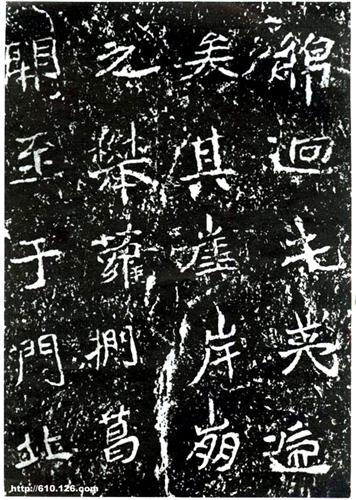 綿迴屯夷遞
矣其崖岸崩
之攀蘿捫葛
開至于門北
http://610.126.com